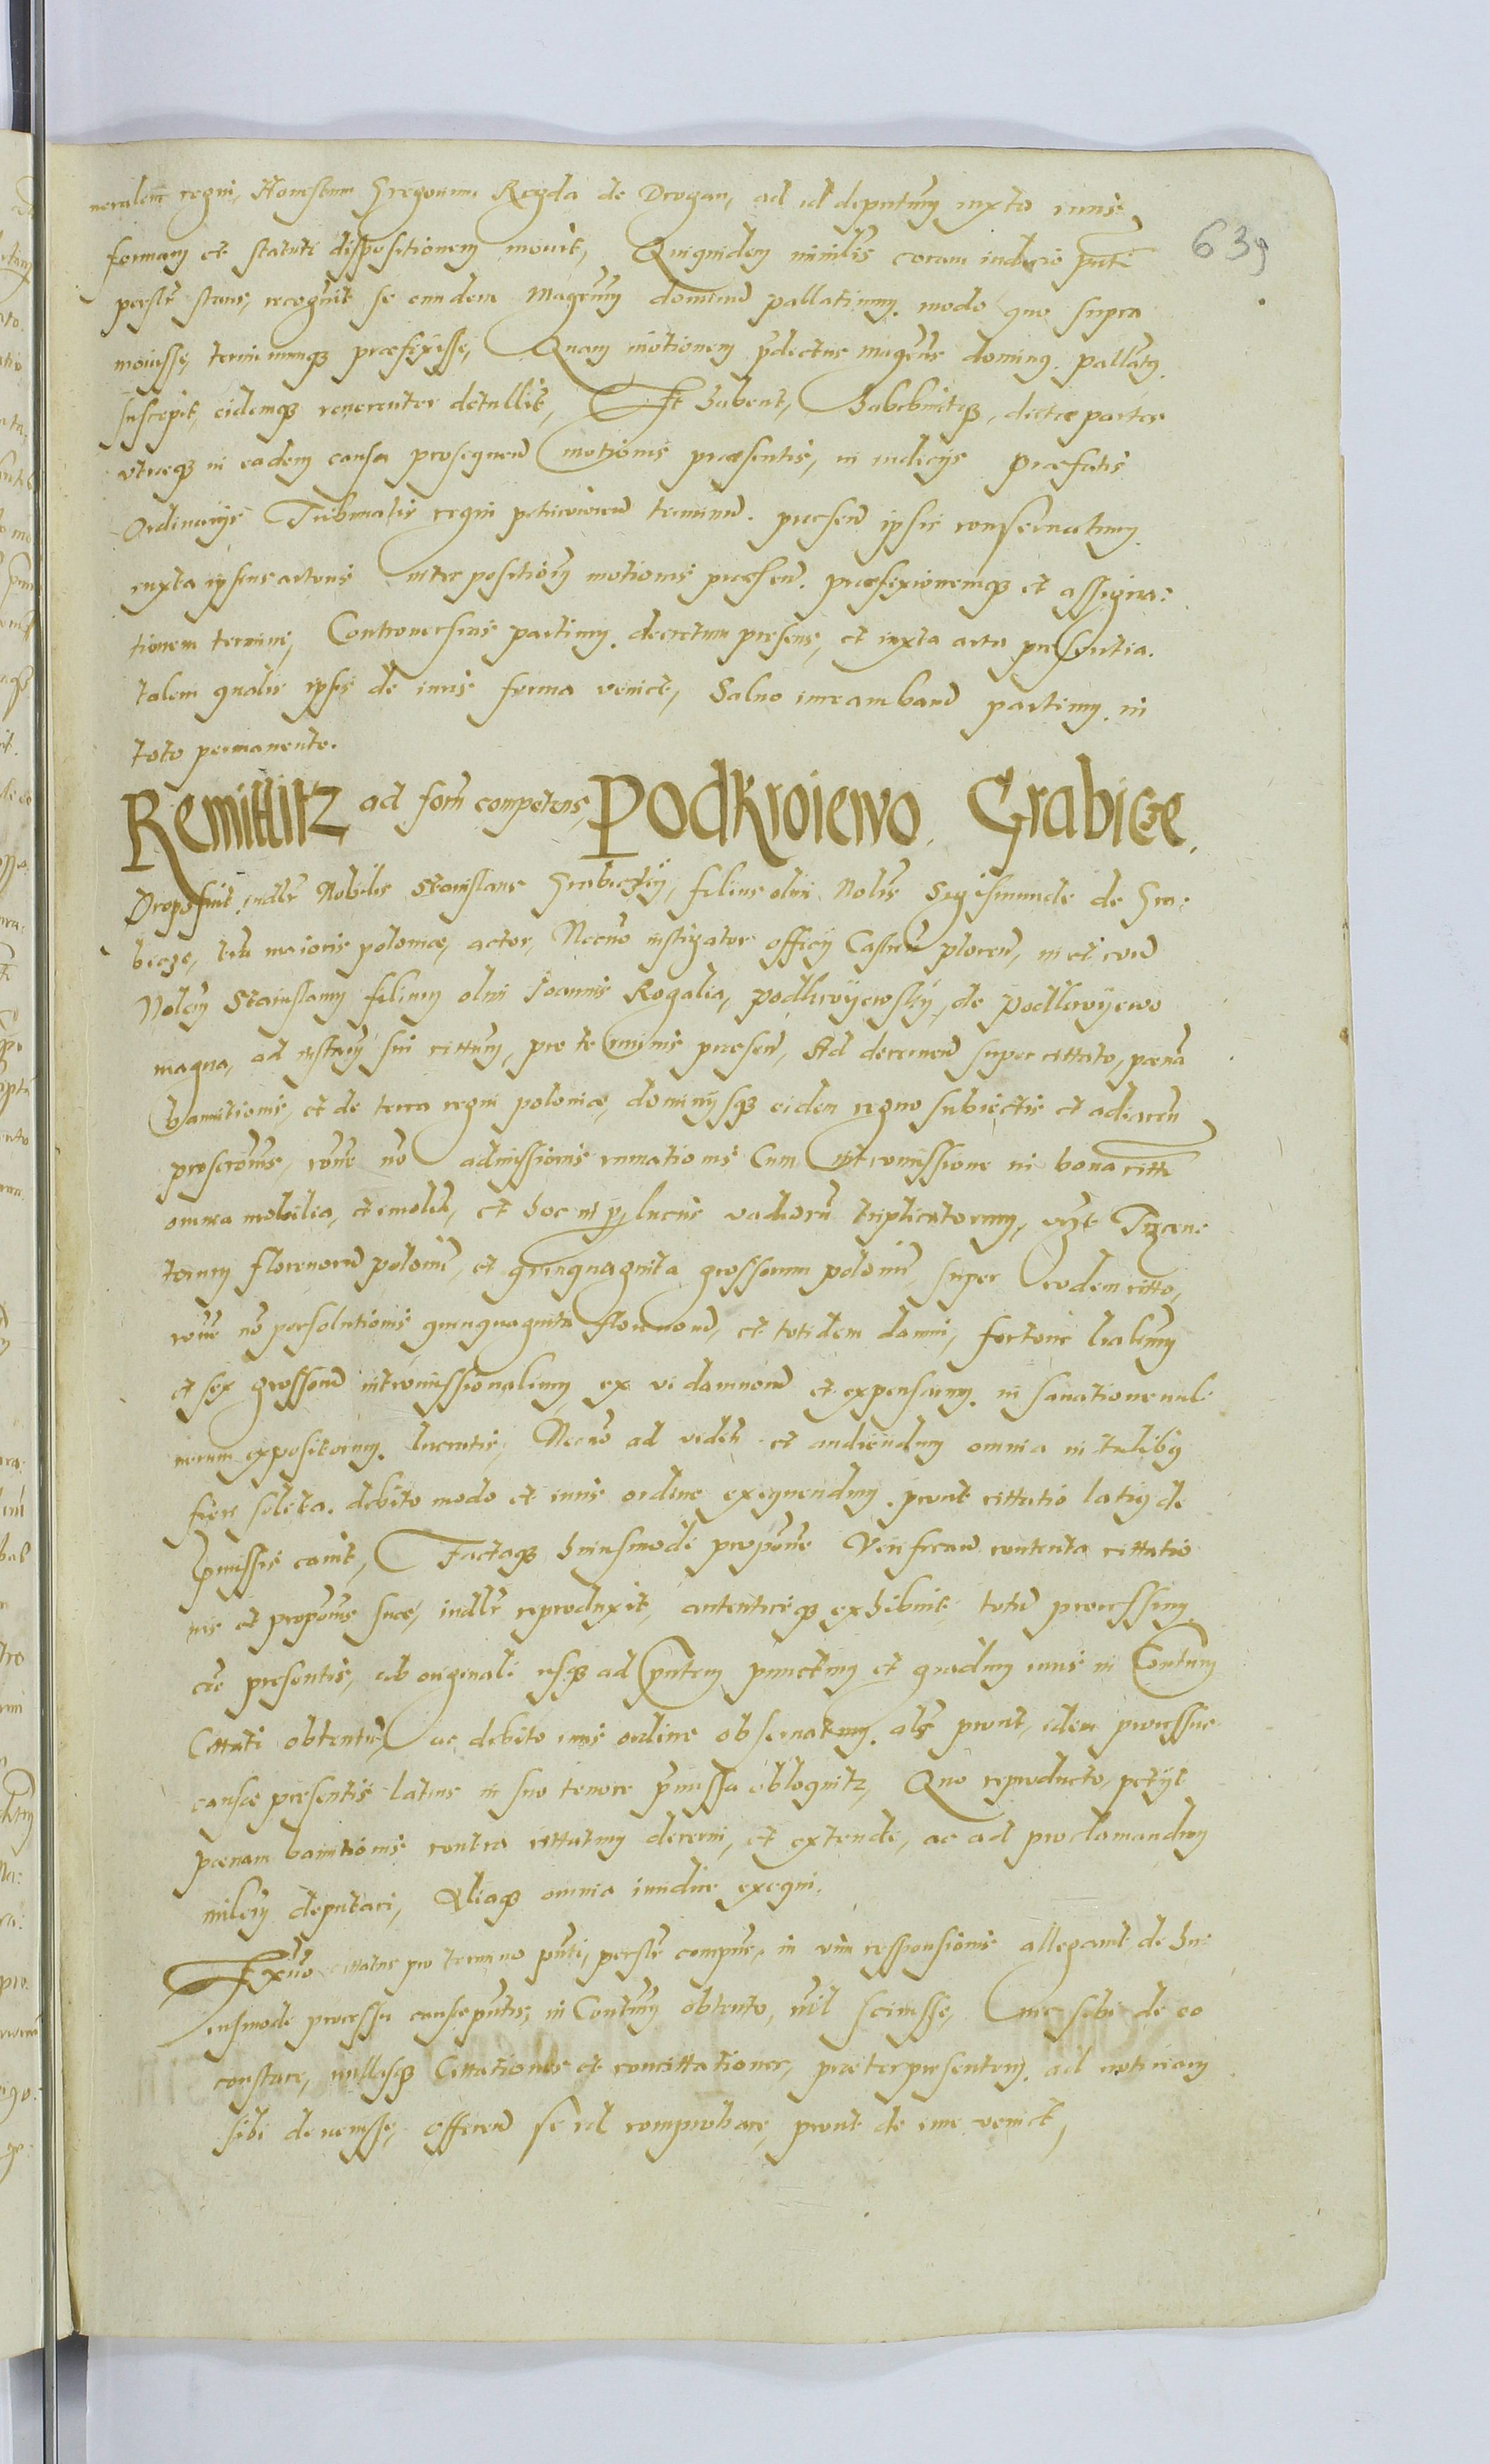 neralem regni, Honestum Gregorium Regda de Drogan, ad id deputatum iuxta iuris
formam et statuti dispositionem movit, Quiquidem minilis coram indicio pntê
persr stans, recogvit se eundem Magcum dominum pallatinum modo quo supra
moiusse, terminumqz præfixisse, Quam motionem pdictus magcus dominus pallatus
suscepit, eidemqz reverenter detullit, Et habent, habebuntqz, dictæ partes
utræqz in eadem causa prosequend motionis præsentis, in iudicys præfatis
Ordinarys Tribunalis regni petricouien terminum præsen ipsis conservatum
iuxta ipsius actoris interpositionem motionis præsen præfixionemqz et assigna:
tionem termini, Controversius partium decretum præsens, et iuxta acta præsentia
talem qualis ipsis de iuris forma venict, Salvo iure ambarum partium in
toto permanente.
Remittitz ad form competens, Podkroiewo Grabicze
639
Proposuit iudlr Nobilis Stanislaus Grabiczky, filius olim Nolis Sigismundi de Gra:
bicze, terr maioris poloniæ, actor, Necno instigator officy Castren ploren, in et cora
Nolem Stanislaum filium olim Joannis Rogalia, podkroyewsky, de podkroyewo
magna, ad instam sui cittum, pro terminis præsen, Ad decernen super cittato, pœna
bannitionis, et de terra regni poloniæ, dominysqz eidem regno subiectis et adiacen
proscronis, rone no admissionis rumationis Cum intromissione in bona citti
omnia mobilia, et imolia, et hoc in p lucris vadiorum triplicatorum, vzt Trzcen:
torum florenorum polonim, et quinquaginta grossorum polonim super eodem citto,
rone no persolutionis quinquaginta florenorum, et totidem damni, fortone lialium
et sex grossorum intromissionalium, ex vi damnorum et expensarum in sanatione vul
nerum expositorum lucratis, Necno ad viden et audiendum omnia in talibus
fieri solita debito modo et iuris ordine exequendum prout cittatio latius de
pmissis canit, Factaqz huiusmodi propone Verificand contenta cittatio
nis et proponis suæ, iudlr reproduxit, autenticeqz exhibuit totum processum
cæ presentis, ab originali usqz ad pntem punctum et gradum iuris in Contum
Cittati obtentum, ac debito iuris ordine observatum als prout, idem processus
causæ præsentis latius in suo tenore pmissa obloquitz, Quo reproducto, petyt
pœnam bannitionis contra cittatum decerni, et extendi, ac ad proclamandum
milem deputari, Aliaqz omnia iuridice exequi.
Exuo cittatus pro termino pnti, persr compns, in vim responsionis allegavit de hu:
iusmodi processu causæ pntis, in Contum obtento, nil scivisse, nec sibi de eo
constare, nullasqz Cittationes et concittationes, præter præsentem, ad notitiam
sibi devenisse, offerend se id comprobare, prout de iure veniet,